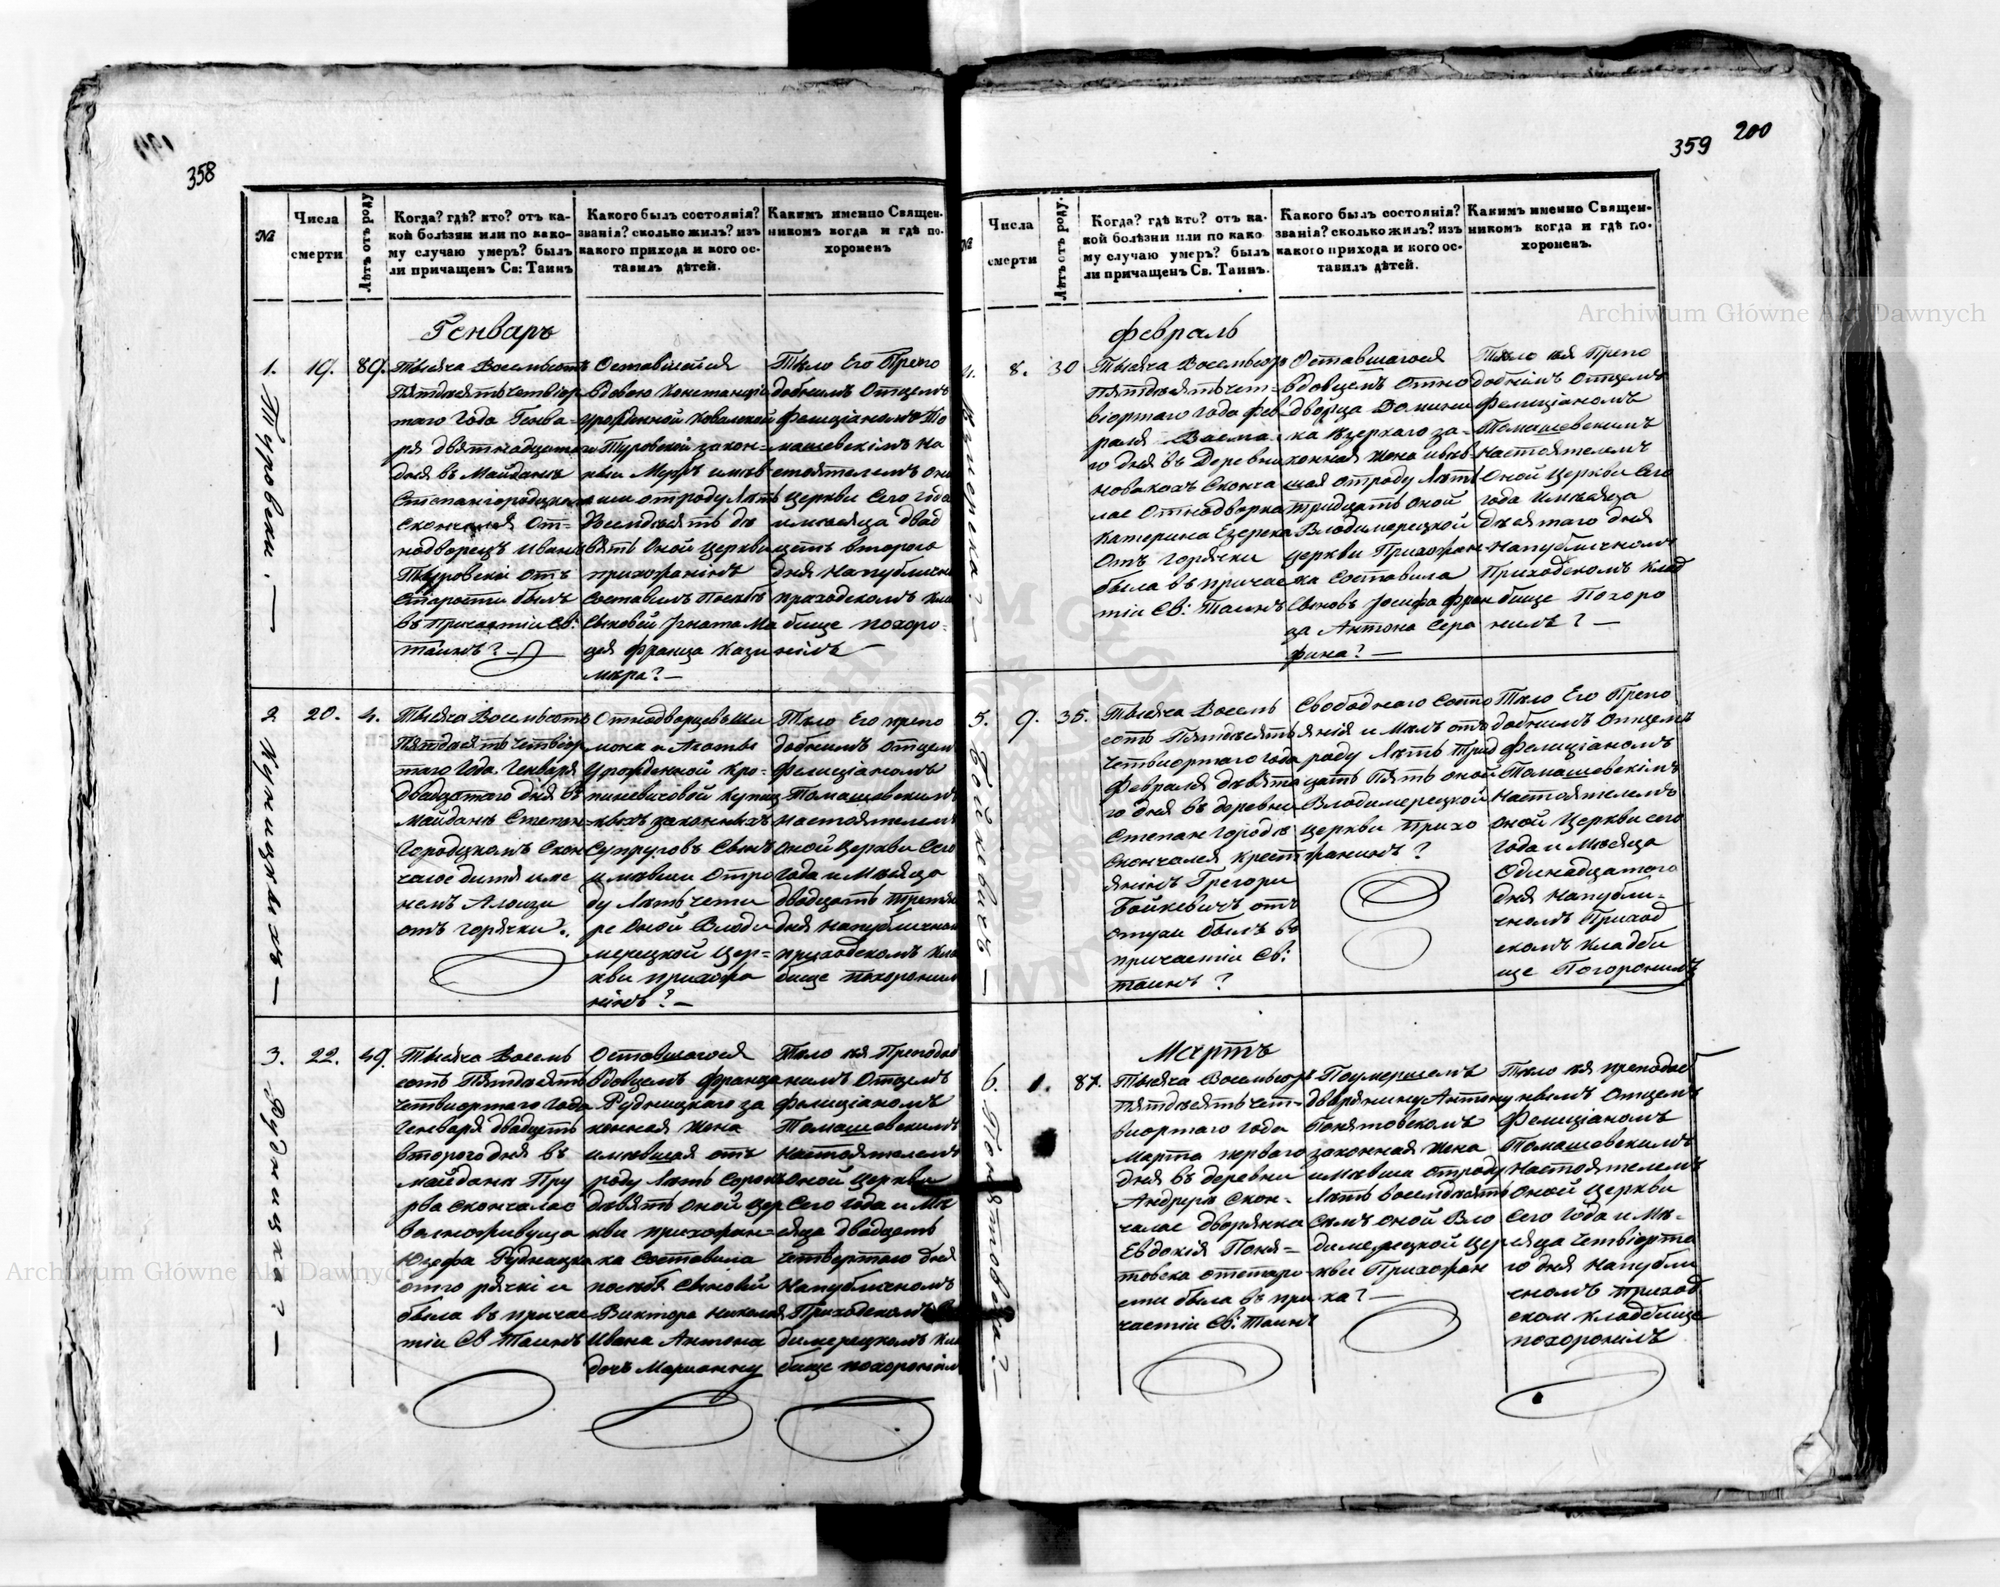 358
№
Числа
смерти
Лѣтъ отъ роду
Когда? гдѣ? кто? отъ ка-
кой болѣзни или по како-
му случаю умеръ? былъ
ли причащенъ Св: Таинъ
Какого былъ состоянія?
званія? сколько жилъ? изъ
какого прихода и кого ос-
тавилъ дѣтей.
Какимъ именно Священ-
никомъ когда и гдѣ по-
хороненъ
Генварь
1.
19.
89.
Тысяча Восемьсотъ
Пятдесятъ четвіор
таго Года Генва-
ря
дня въ Майданѣ
Скончался От-
нодворецъ Иванъ
Туровскій отъ
Старости былъ
въ Причастіи Св:
Таинъ? —
вдовою Констанція
урожденной Ковалской
и Туровскій закон-
отроду Лѣтъ
Восемдесятъ де
вять Оной Церкви
прихожанинъ
Составилъ
Сыновей Игната Ма
цея Франца Кази
мира? —
Тѣло Его Препо
добнимъ Отцемъ
Фелиціаномъ То
машевскімъ На
стоятелемъ Оно
Церкви Сего года
и мѣсяца двад
цать второго
дня На публично
приходскомъ кла
бище похоро-
нілъ —
2.
20.
4.
Тысяча Восемьсотъ
Пятдесятъ четвіор
таго Года Генваря
двадцатого дня въ
Майданѣ Степан
Городцкомъ Скон
чалос дитя име
немъ Алоизи
отъ горячки?
Урожденной Кро-
законныхъ
Супруговъ Сынъ
имѣвши Отро
ду Лѣтъ чети
ре Оной Влоди
мерецкой Цер-
кви прихожа
нінъ? —
Тѣло Его препо
добнимъ отцем
Фелиціаномъ
Томашевскимъ
Настоятелемъ
Оной Церкви Сего
Года и Мѣсяца
двадцать третя
дня На публичном
приходскомъ кла
бище похоронил
3. Рудницка? —
22.
49.
Тысяча Восемь
сотъ Пятдесятъ
четвиортаго Года
Генваря двадцать
второго дня въ
майдани Пру
рва скончалас
Юзефа Рудницка
была въ причас
тіи Св Таинъ
Оставшагося
вдовцемъ Франца
Рудницкаго за
конная жена
имѣвшая отъ
роду Лѣтъ Сорокъ
девять Оной Цер
кви прихожан-
ка Составила
Сыновей
Виктора Николая
Ивана Антона
дочь Марианну
Тѣло ея Преподоб
нимъ Отцемъ
Фелиціаномъ
Томашевскимъ
Настоятелемъ
Оной Церкви
Сего Года и Мѣ
сяца двадцать
четвертаго дня
На публичномъ
Приходскомъ
димерецкомъ кла
бище похоронилъ
359
200
№
Числа
смерти
Лѣтъ отъ роду.
Когда? гдѣ кто? отъ ка-
кой болѣзни или по како
му случаю умеръ? былъ
ли причащенъ Св. Таинъ.
Какого былъ состоянія?
званія? сколько жилъ? изъ
какого прихода и кого ос-
тавилъ дѣтей.
Какимъ именно Священ-
никомъ когда и гдѣ по-
хороненъ.
Февраль
8.
30
Тысяча Восемьсотъ
Пятдесятъ чет-
віортаго года фев
раля Восма
го дня въ Деревни
Новаках Сконча
лас Отнодворка
Катерина Езерска
Отъ Горячки
была въ причас
тіи Св: Таинъ
Оставшагося
вдовцемъ Отно
дворца Домини
ка Езерскаго за-
конная жена имѣв
шая отроду Лѣтъ
тридцать Оной
Владимерецкой
церкви Прихожан
ка Составила
Сыновъ Юсифа Фран
ца Антона Сера
фина? —
Тѣло ея Препо
добнімъ Отцемъ
Фелиціаномъ
Томашевскимъ
Настоятелемъ
Оной Церкви Сего
года и мѣсяца
десятаго дня
На публичномъ
Приходскомъ Клад
бище Похоро
нилъ? —
5. Бойкевичъ —
9.
35.
Тысяча Восемь
сотъ Пятдесятъ
четвиортаго года
Февраля девято
го дня въ деревни
Степан Городѣ
Скончался крест
янінъ Грегори
Бойкевичъ отъ
былъ въ
причастіи Св:
таинъ?
Свободнаго Состо
янія и Мѣлъ отъ
роду Лѣтъ Трид
цать Пять оной
Влодимерецкой
церкви Прихо
жанинъ?
Тѣло Его Препо
добнимъ Отцемъ
Фелиціаномъ
Томашевскімъ
Настоятелемъ
оной Церкви сего
года и Мѣсяца
Одинадцатого
дня На публи-
чномъ Приход
скомъ кладби
ще Погоронилъ
Мартъ
6. Понятовска? —
1.
87.
Тысяча Восемьсотъ
пятдесятъ чет-
виортаго года
Марта первого
дня въ деревни
Андруга Скон-
чалас дворянка
Евдокія Поня-
товска отстаро
сти была въ при
частіи Св: Таинъ
По умершемъ
дворянину Антону
Понятовскомъ
законная жена
имѣвша отроду
Лѣтъ восемдесятъ
семъ оной Вло
димерецкой Цер
кви Прихожан
ка? —
Тѣло ея преподоб
нымъ Отцемъ
Фелиціаномъ
Томашевскимъ
Настоятелемъ
Оной Церкви
Сего Года и Мѣ-
сяца четвіорто
го дня На публи
чномъ приход
ском кладбище
похоронилъ
Archiwum Główne Akt Dawnych
Archiwum Główne Akt Dawnych